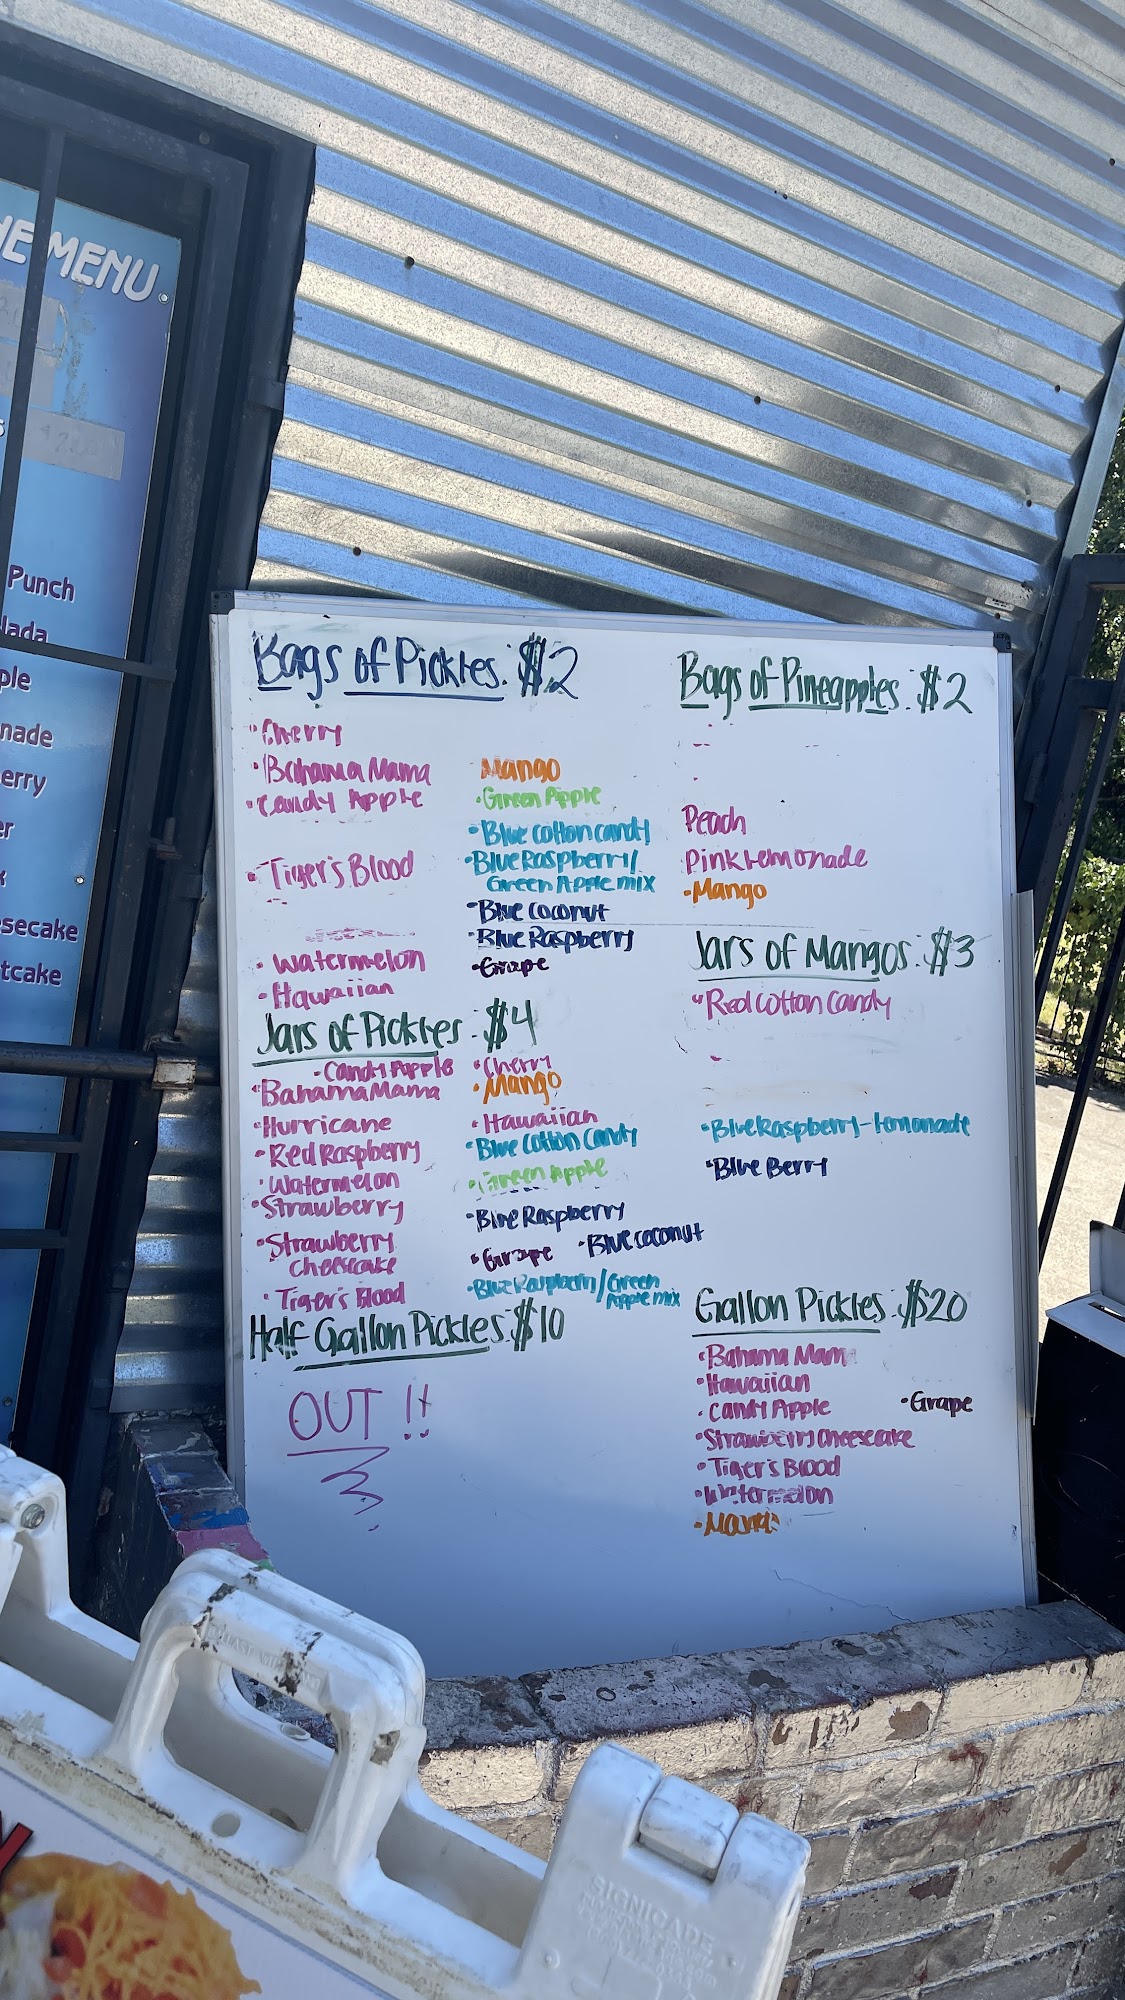 HE MENU
Punch
lada
ple
nade
erry
er
esecake
tcake
Bags of Pickles: $2
• Cherry
• Bahama Mama
• Candy Apple
• Tiger's Blood
• Watermelon
• Hawaiian
• Mango
• Green Apple
• Blue Cotton Candy
• Blue Raspberry/
Green Apple mix
• Blue Coconut
• Blue Raspberry
• Grape
Jars of Pickles: $4
• Candy Apple
• Bahama Mama
• Hurricane
• Red Raspberry
• Watermelon
• Strawberry
• Strawberry
Cheesecake
• Tiger's Blood
• Cherry
• Mango
• Hawaiian
• Blue Cotton Candy
• Green Apple
• Blue Raspberry
• Grape • Blue Coconut
• Blue Raspberry/Green
Apple mix
Half Gallon Pickles: $10
OUT!!
Bags of Pineapples: $2
Peach
Pink Lemonade
• Mango
Jars of Mangos: $3
• Red Cotton Candy
• Blue Raspberry-Lemonade
• Blue Berry
Gallon Pickles: $20
• Bahama Mama
• Hawaiian
• Candy Apple
• Strawberry Cheesecake
• Tiger's Blood
• Watermelon
• Mango
• Grape
SIGNICADE